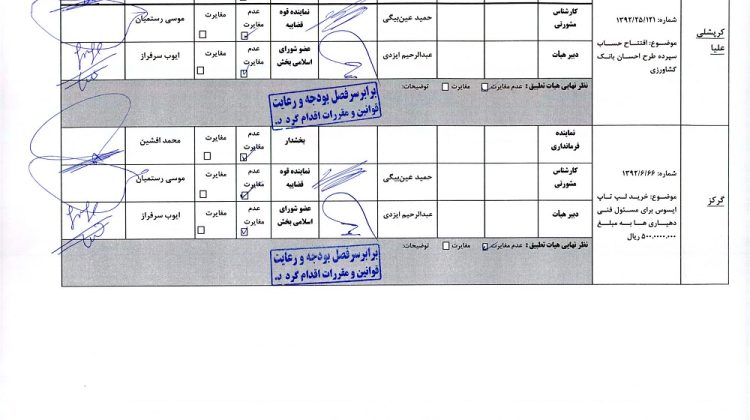 کریشلی علیا
شماره: ۱۳۹۲/۲۵/۱۲۱
موضوع: افتتاح حساب
سپرده طرح احسان بانک
کشاورزی
کارشناس مشورتی
حمید عین‌بیگی
نماینده قوه قضاییه
عدم مغایرت
مغایرت
موسی رستمیان
دبیر هیات
عبدالرحیم ایزدی
عضو شورای اسلامی بخش
عدم مغایرت
مغایرت
ایوب سرفراز
نظر نهایی هیات تطبیق: عدم مغایرت مغایرت توضیحات:
برابر سرفصل بودجه و رعایت
قوانین و مقررات اقدام گردد.
گرکز
شماره: ۱۳۹۲/۶/۶۶
موضوع: خرید لپ تاپ
ایسوس برای مسئول فنی
دهیاری ها به مبلغ
۵۰۰.۰۰۰۰.۰۰۰ ریال
نماینده فرمانداری
بخشدار
عدم مغایرت
مغایرت
محمد افشین
کارشناس مشورتی
حمید عین‌بیگی
نماینده قوه قضاییه
عدم مغایرت
مغایرت
موسی رستمیان
دبیر هیات
عبدالرحیم ایزدی
عضو شورای اسلامی بخش
عدم مغایرت
مغایرت
ایوب سرفراز
نظر نهایی هیات تطبیق: عدم مغایرت مغایرت توضیحات:
برابر سرفصل بودجه و رعایت
قوانین و مقررات اقدام گردد.